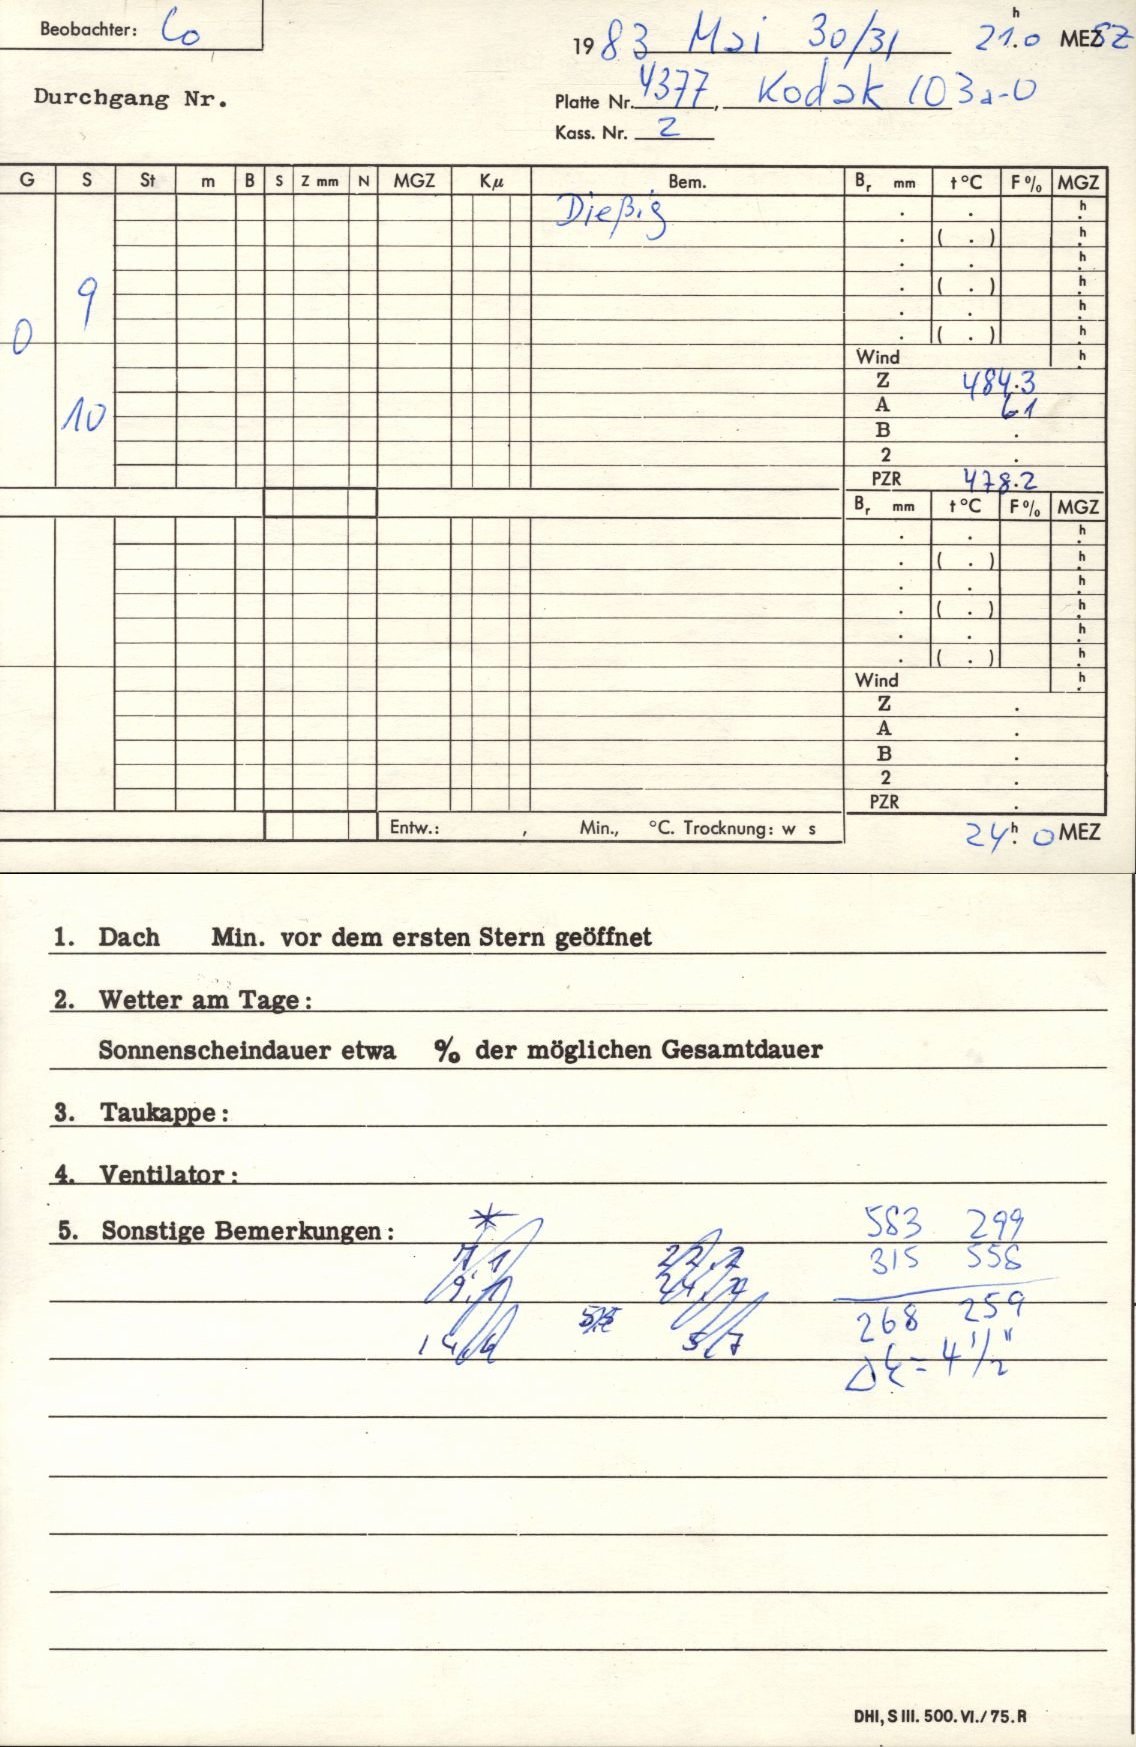 Beobachter: Co
1983 Mai 30/31 21h.0 MESZ
Durchgang Nr.
Platte Nr. 4377, Kodak 103a-O
Kass. Nr. 2
G S St m B S Z mm N MGZ Kμ Bem. Br mm t °C F % MGZ
Dießig . . h
. ( . ) h
. . h
9 . ( . ) h
. . h
0 . ( . ) h
Wind h
Z 484.3
10 A 6.1
B .
2 .
PZR 478.2
Br mm t °C F % MGZ
. . h
. ( . ) h
. . h
. ( . ) h
. . h
. ( . ) h
Wind h
Z .
A .
B .
2 .
PZR .
Entw.: , Min., °C. Trocknung: w s
24h.0 MEZ
1. Dach Min. vor dem ersten Stern geöffnet
2. Wetter am Tage:
Sonnenscheindauer etwa % der möglichen Gesamtdauer
3. Taukappe:
4. Ventilator:
5. Sonstige Bemerkungen: * 583 299
7.1 22.7 315 558
9.1 24.7
268 259
14.6 5.7
Δξ = 4 1/2"
DHI, S III. 500. VI./75. R